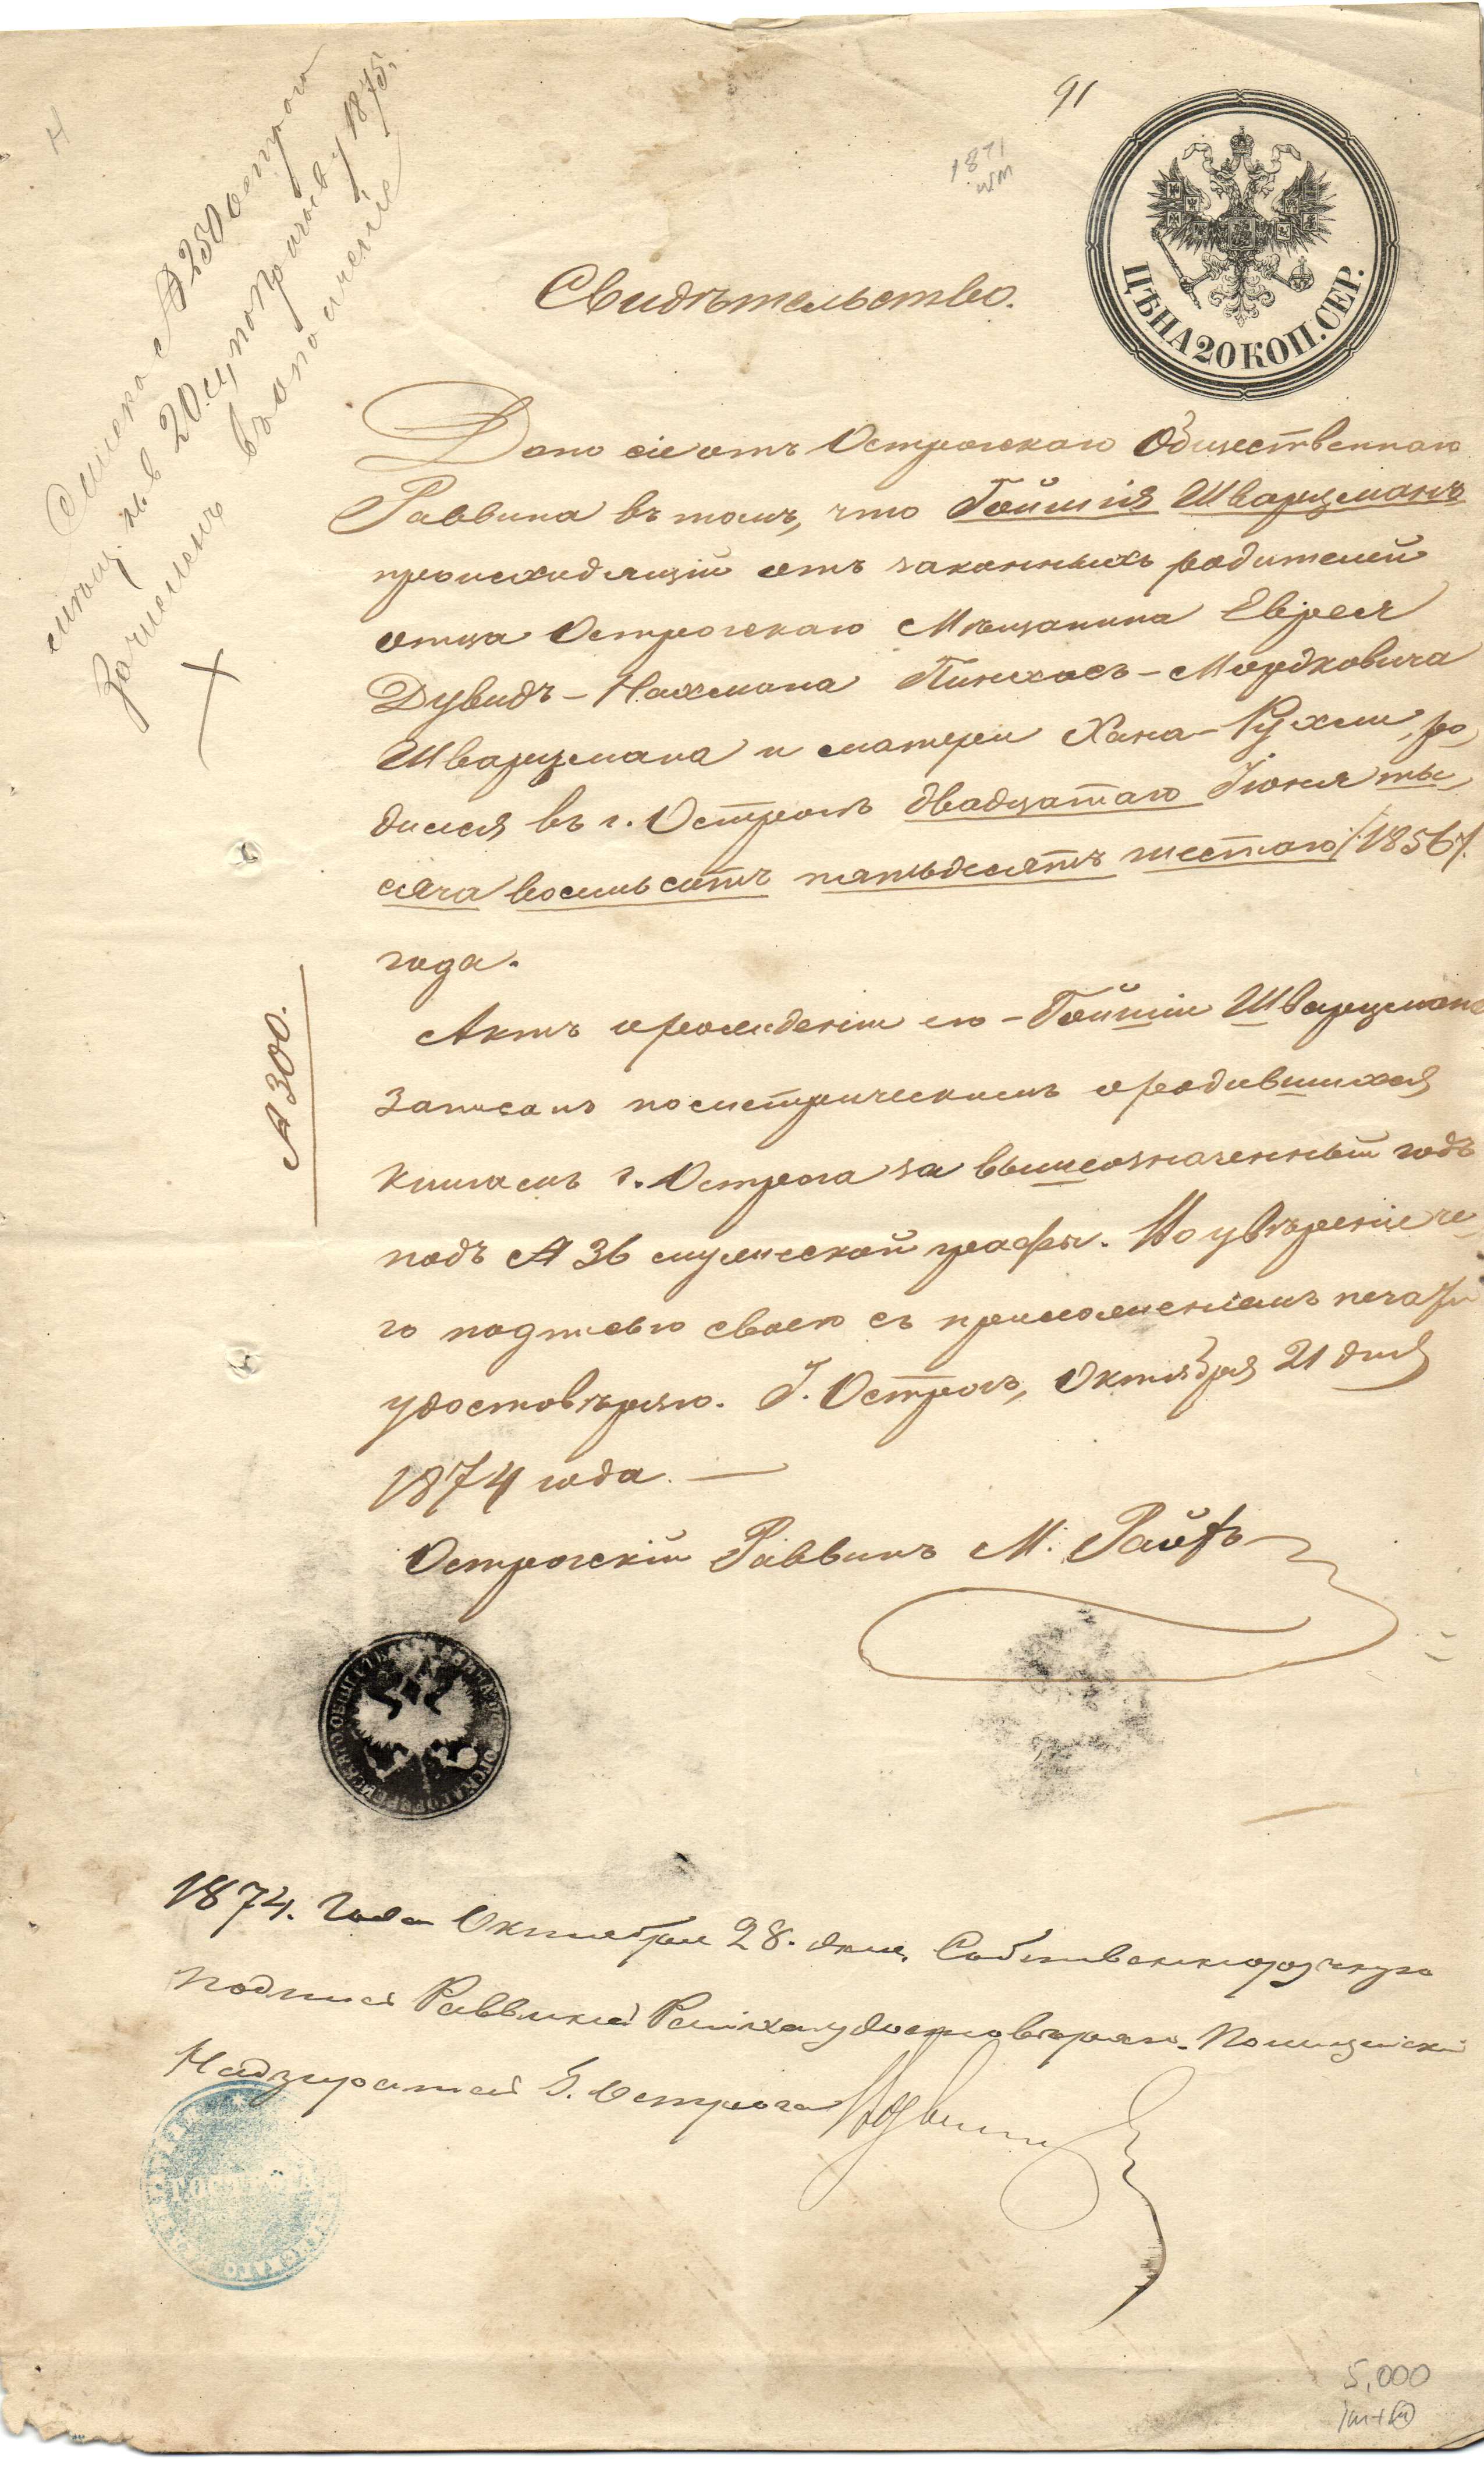 91
1871
wm
ЦѢНА 20 КОП. СЕР.
Свидѣтельство.
Дано сіе отъ Острожскаго Общественнаго
Раввина въ томъ, что Гойшія Шварцманъ
происходящій отъ законныхъ родителей
отца Острожскаго Мѣщанина Еврея
Дувидъ-Нахмана Пинхасъ-Мордковича
Шварцмана и матери Хана-Рухли, ро,
дился въ г. Острогѣ двадцатаго Іюня ты,
сяча восемьсотъ пятьдесятъ шестаго /1856/.
года.
Актъ о рожденіи его - Гойшіи Шварцмана
записанъ по метрическимъ о родившихся
книгамъ г. Острога за вышеозначенный годъ
подъ № 36 мужеской графы. Но увѣреніе че,
го подписью своею съ приложеніемъ печати
удостовѣряю. Г. Острогъ, Октября 21 дня
1874 года. —
Острожскій Раввинъ М. Райхъ
№ 300.
№ 250
20 уч. 1875.
Зачисленъ
1874. Года Октября 28. дня, Собственноручную
подпись Раввина Райха удостовѣряю. Полицейскій
Надзиратель Г. Острога
5,000